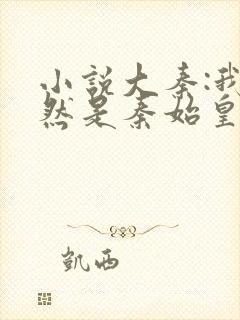 小说大秦:我
然是秦始皇
凯西